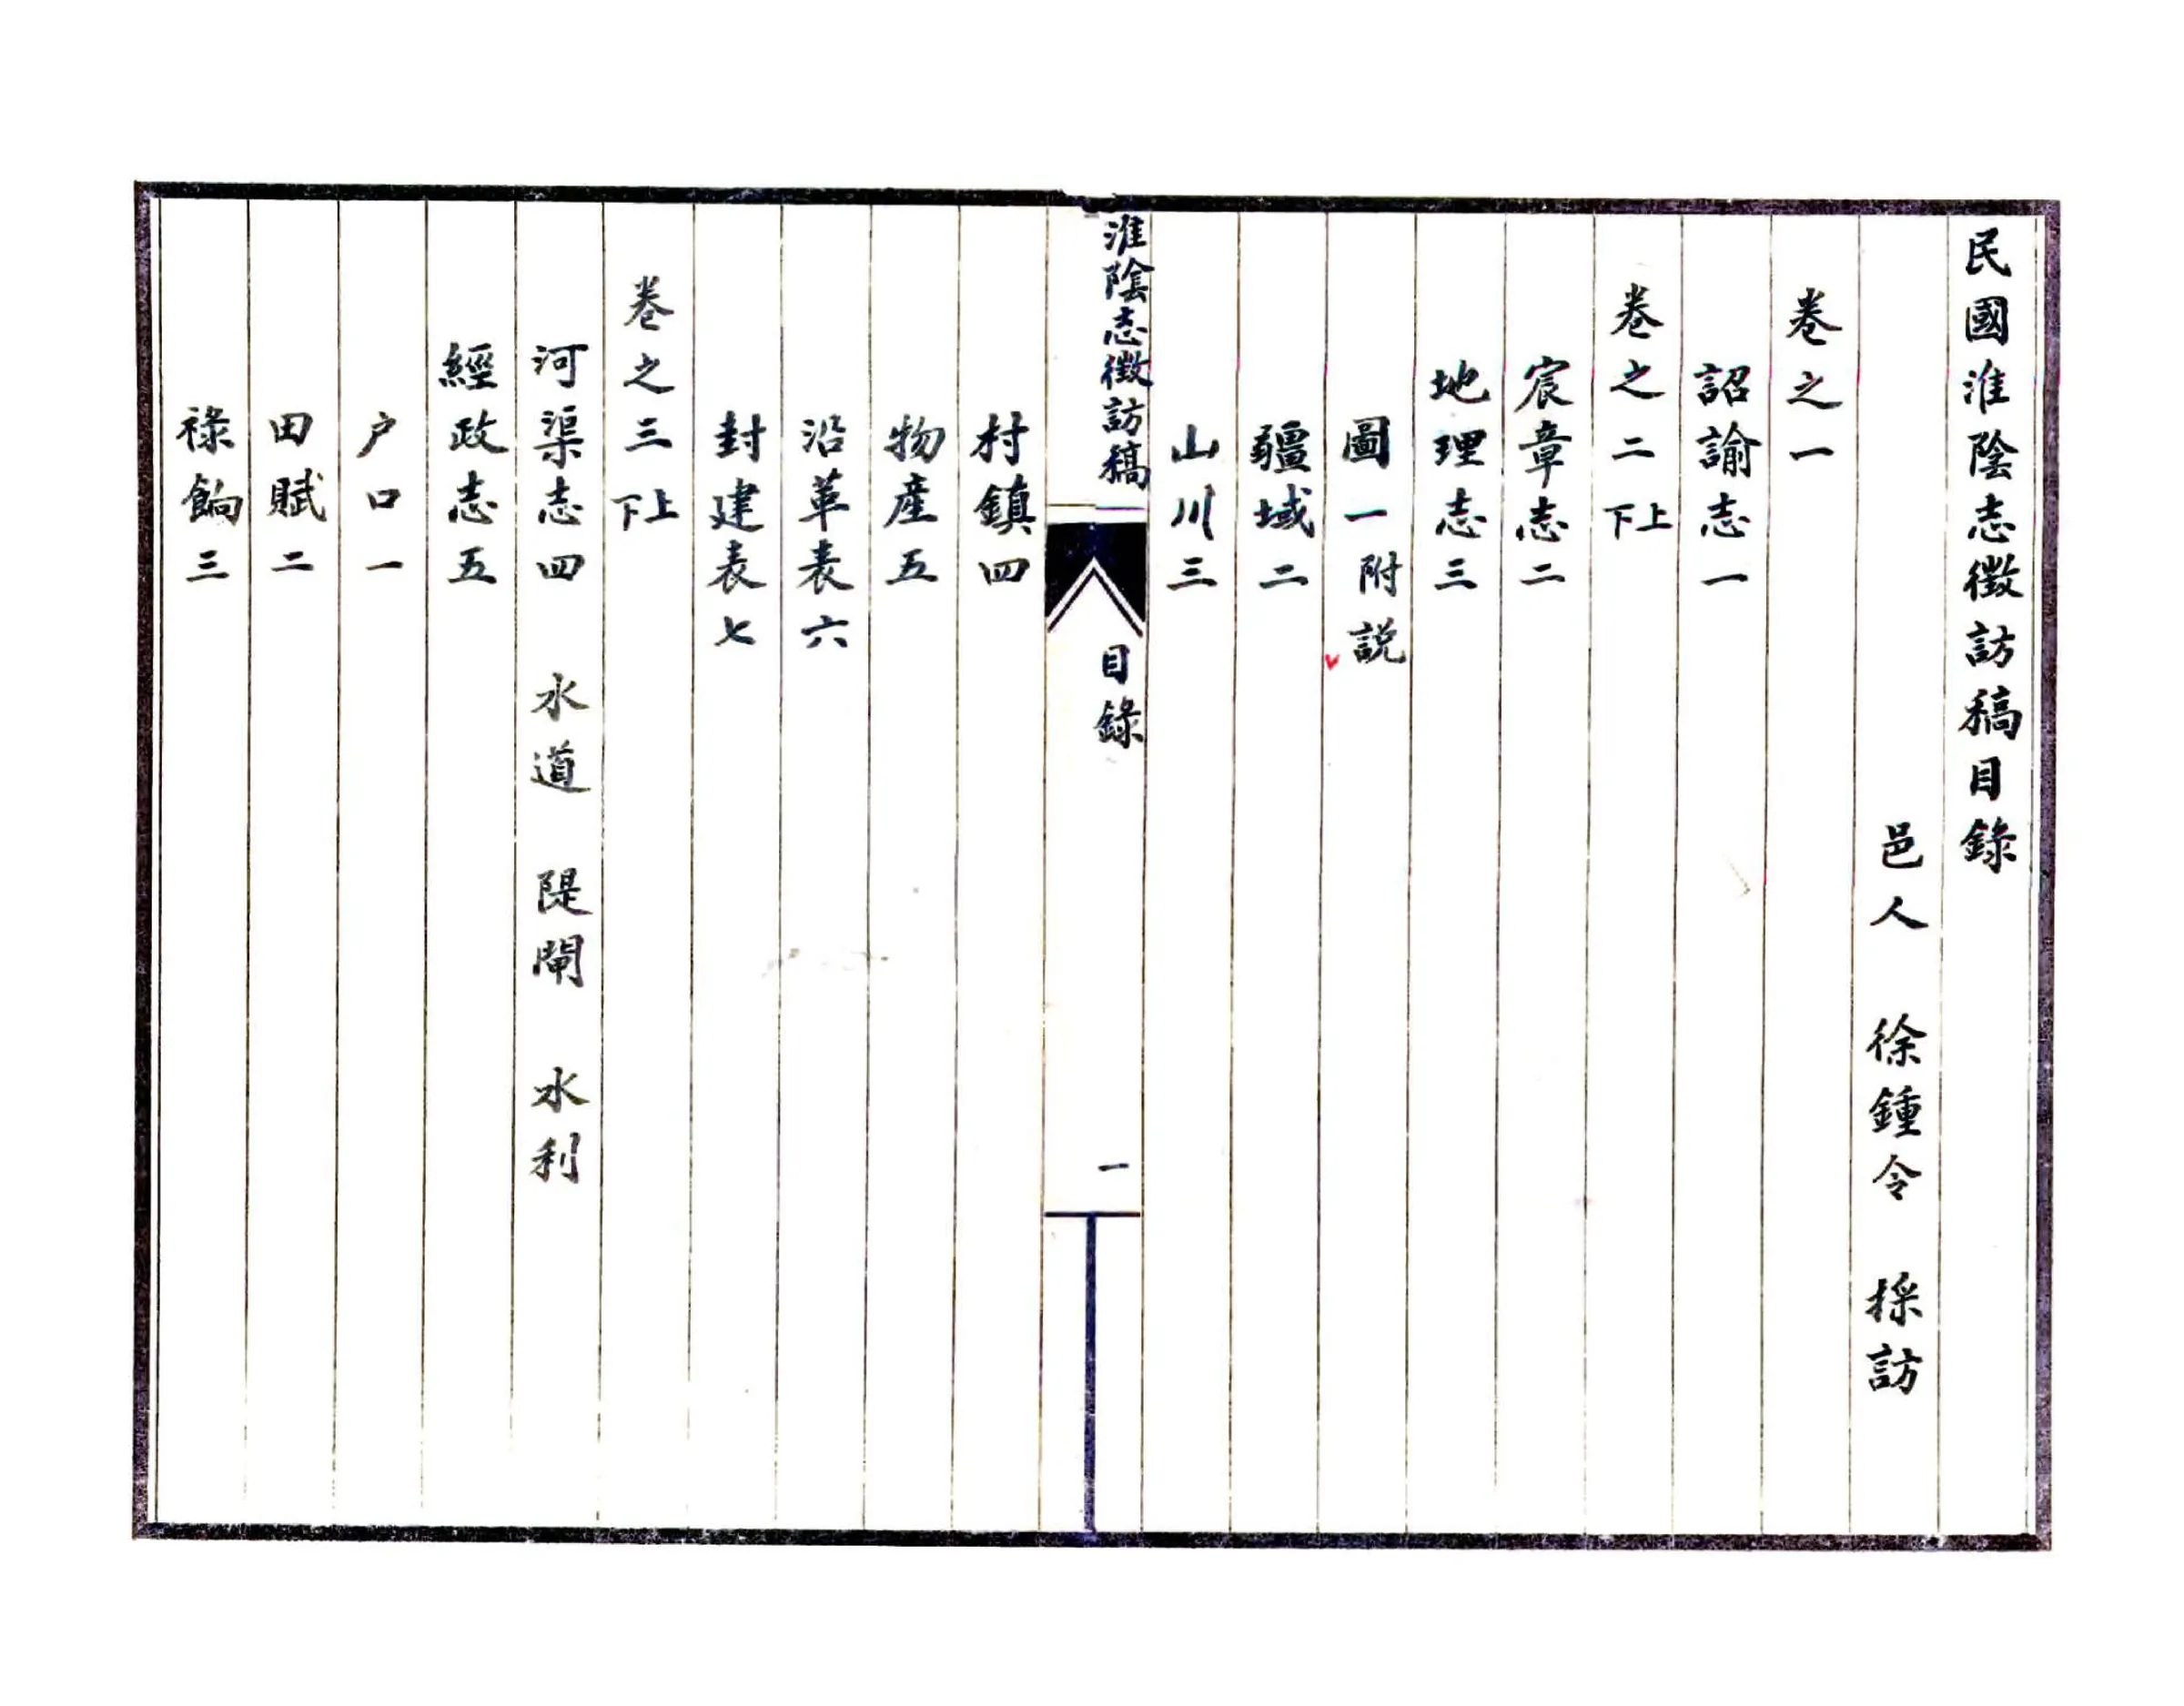 民國淮陰志徵訪稿目錄
邑人 徐鍾令 採訪
卷之一
詔諭志一
卷之二上下
宸章志二
地理志三
圖一附説
疆域二
山川三
淮陰志徵訪稿 目錄 一
村鎮四
物產五
沿革表六
封建表七
卷之三上下
河渠志四 水道 隄閘 水利
經政志五
户口一
田賦二
祿餉三